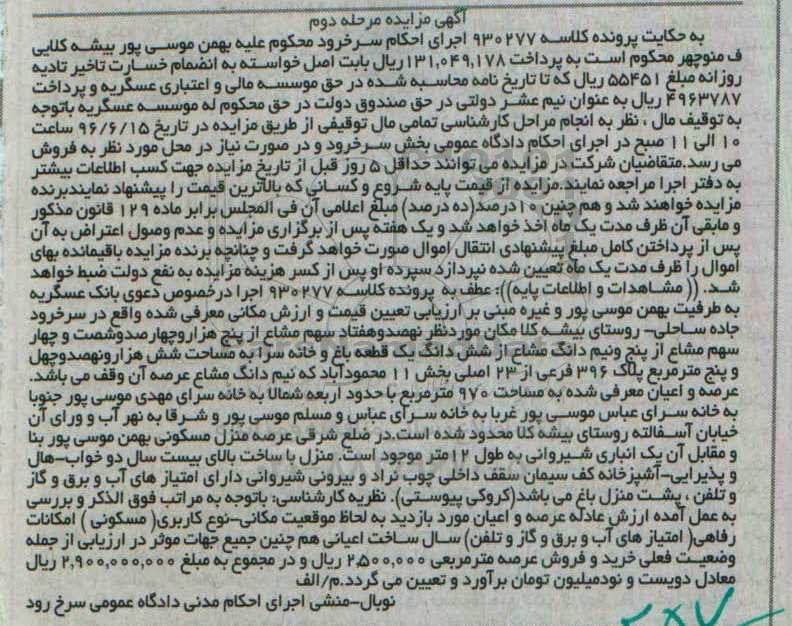 آگهی مزایده مرحله دوم
به حکایت پرونده کلاسه ۹۳۰۲۷۷ اجرای احکام سرخرود محکوم علیه بهمن موسی پور بیشه کلایی
ف منوچهر محکوم است به پرداخت ۱۳۱,۰۴۹,۱۷۸ ریال بابت اصل خواسته به انضمام خسارت تاخیر تادیه
روزانه مبلغ ۵۵۴۵۱ ریال که تا تاریخ نامه محاسبه شده در حق موسسه مالی و اعتباری عسگریه و پرداخت
۴۹۶۳۷۸۷ ریال به عنوان نیم عشر دولتی در حق صندوق دولت در حق محکوم له موسسه عسگریه باتوجه
به توقیف مال ، نظر به انجام مراحل کارشناسی تمامی مال توقیفی از طریق مزایده در تاریخ ۹۶/۶/۱۵ ساعت
۱۰ الی ۱۱ صبح در اجرای احکام دادگاه عمومی بخش سرخرود و در صورت نیاز در محل مورد نظر به فروش
می رسد.متقاضیان شرکت در مزایده می توانند حداقل ۵ روز قبل از تاریخ مزایده جهت کسب اطلاعات بیشتر
به دفتر اجرا مراجعه نمایند.مزایده از قیمت پایه شروع و کسانی که بالاترین قیمت را پیشنهاد نمایندبرنده
مزایده خواهند شد و هم چنین ۱۰درصد(ده درصد) مبلغ اعلامی آن فی المجلس برابر ماده ۱۲۹ قانون مذکور
و مابقی آن ظرف مدت یک ماه اخذ خواهد شد و یک هفته پس از برگزاری مزایده و عدم وصول اعتراض به آن
پس از پرداختن کامل مبلغ پیشنهادی انتقال اموال صورت خواهد گرفت و چنانچه برنده مزایده باقیمانده بهای
اموال را ظرف مدت یک ماه تعیین شده نپردازد سپرده او پس از کسر هزینه مزایده به نفع دولت ضبط خواهد
شد. (( مشاهدات و اطلاعات پایه)): عطف به پرونده کلاسه ۹۳۰۲۷۷ اجرا درخصوص دعوی بانک عسگریه
به طرفیت بهمن موسی پور و غیره مبنی بر ارزیابی تعیین قیمت و ارزش مکانی معرفی شده واقع در سرخرود
جاده ساحلی- روستای بیشه کلا مکان موردنظر نهصدوهفتاد سهم مشاع از پنج هزاروچهارصدوشصت و چهار
سهم مشاع از پنج ونیم دانگ مشاع از شش دانگ یک قطعه باغ و خانه سرا به مساحت شش هزارونهصدوچهل
و پنج مترمربع پلاک ۳۹۶ فرعی از ۲۳ اصلی بخش ۱۱ محمودآباد که نیم دانگ مشاع عرصه آن وقف می باشد.
عرصه و اعیان معرفی شده به مساحت ۹۷۰ مترمربع با حدود اربعه شمالا به خانه سرای مهدی موسی پور جنوبا
به خانه سرای عباس موسی پور غربا به خانه سرای عباس و مسلم موسی پور و شرقا به نهر آب و ورای آن
خیابان آسفالته روستای بیشه کلا محدود شده است.در ضلع شرقی عرصه منزل مسکونی بهمن موسی پور بنا
و مقابل آن یک انباری شیروانی به طول ۱۲متر موجود است. منزل با ساخت بالای بیست سال دو خواب-هال
و پذیرایی-آشپزخانه کف سیمان سقف داخلی چوب نراد و بیرونی شیروانی دارای امتیاز های آب و برق و گاز
و تلفن ، پشت منزل باغ می باشد(کروکی پیوستی). نظریه کارشناسی: باتوجه به مراتب فوق الذکر و بررسی
به عمل آمده ارزش عادله عرصه و اعیان مورد بازدید به لحاظ موقعیت مکانی-نوع کاربری( مسکونی ) امکانات
رفاهی( امتیاز های آب و برق و گاز و تلفن) سال ساخت اعیانی هم چنین جمیع جهات موثر در ارزیابی از جمله
وضعیت فعلی خرید و فروش عرصه مترمربعی ۲,۵۰۰,۰۰۰ ریال و در مجموع به مبلغ ۲,۹۰۰,۰۰۰,۰۰۰ ریال
معادل دویست و نودمیلیون تومان برآورد و تعیین می گردد.م/الف
نوبال-منشی اجرای احکام مدنی دادگاه عمومی سرخ رود